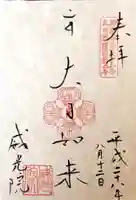 奉拝
大日如来
平成二十八年
八月十二日
威光院